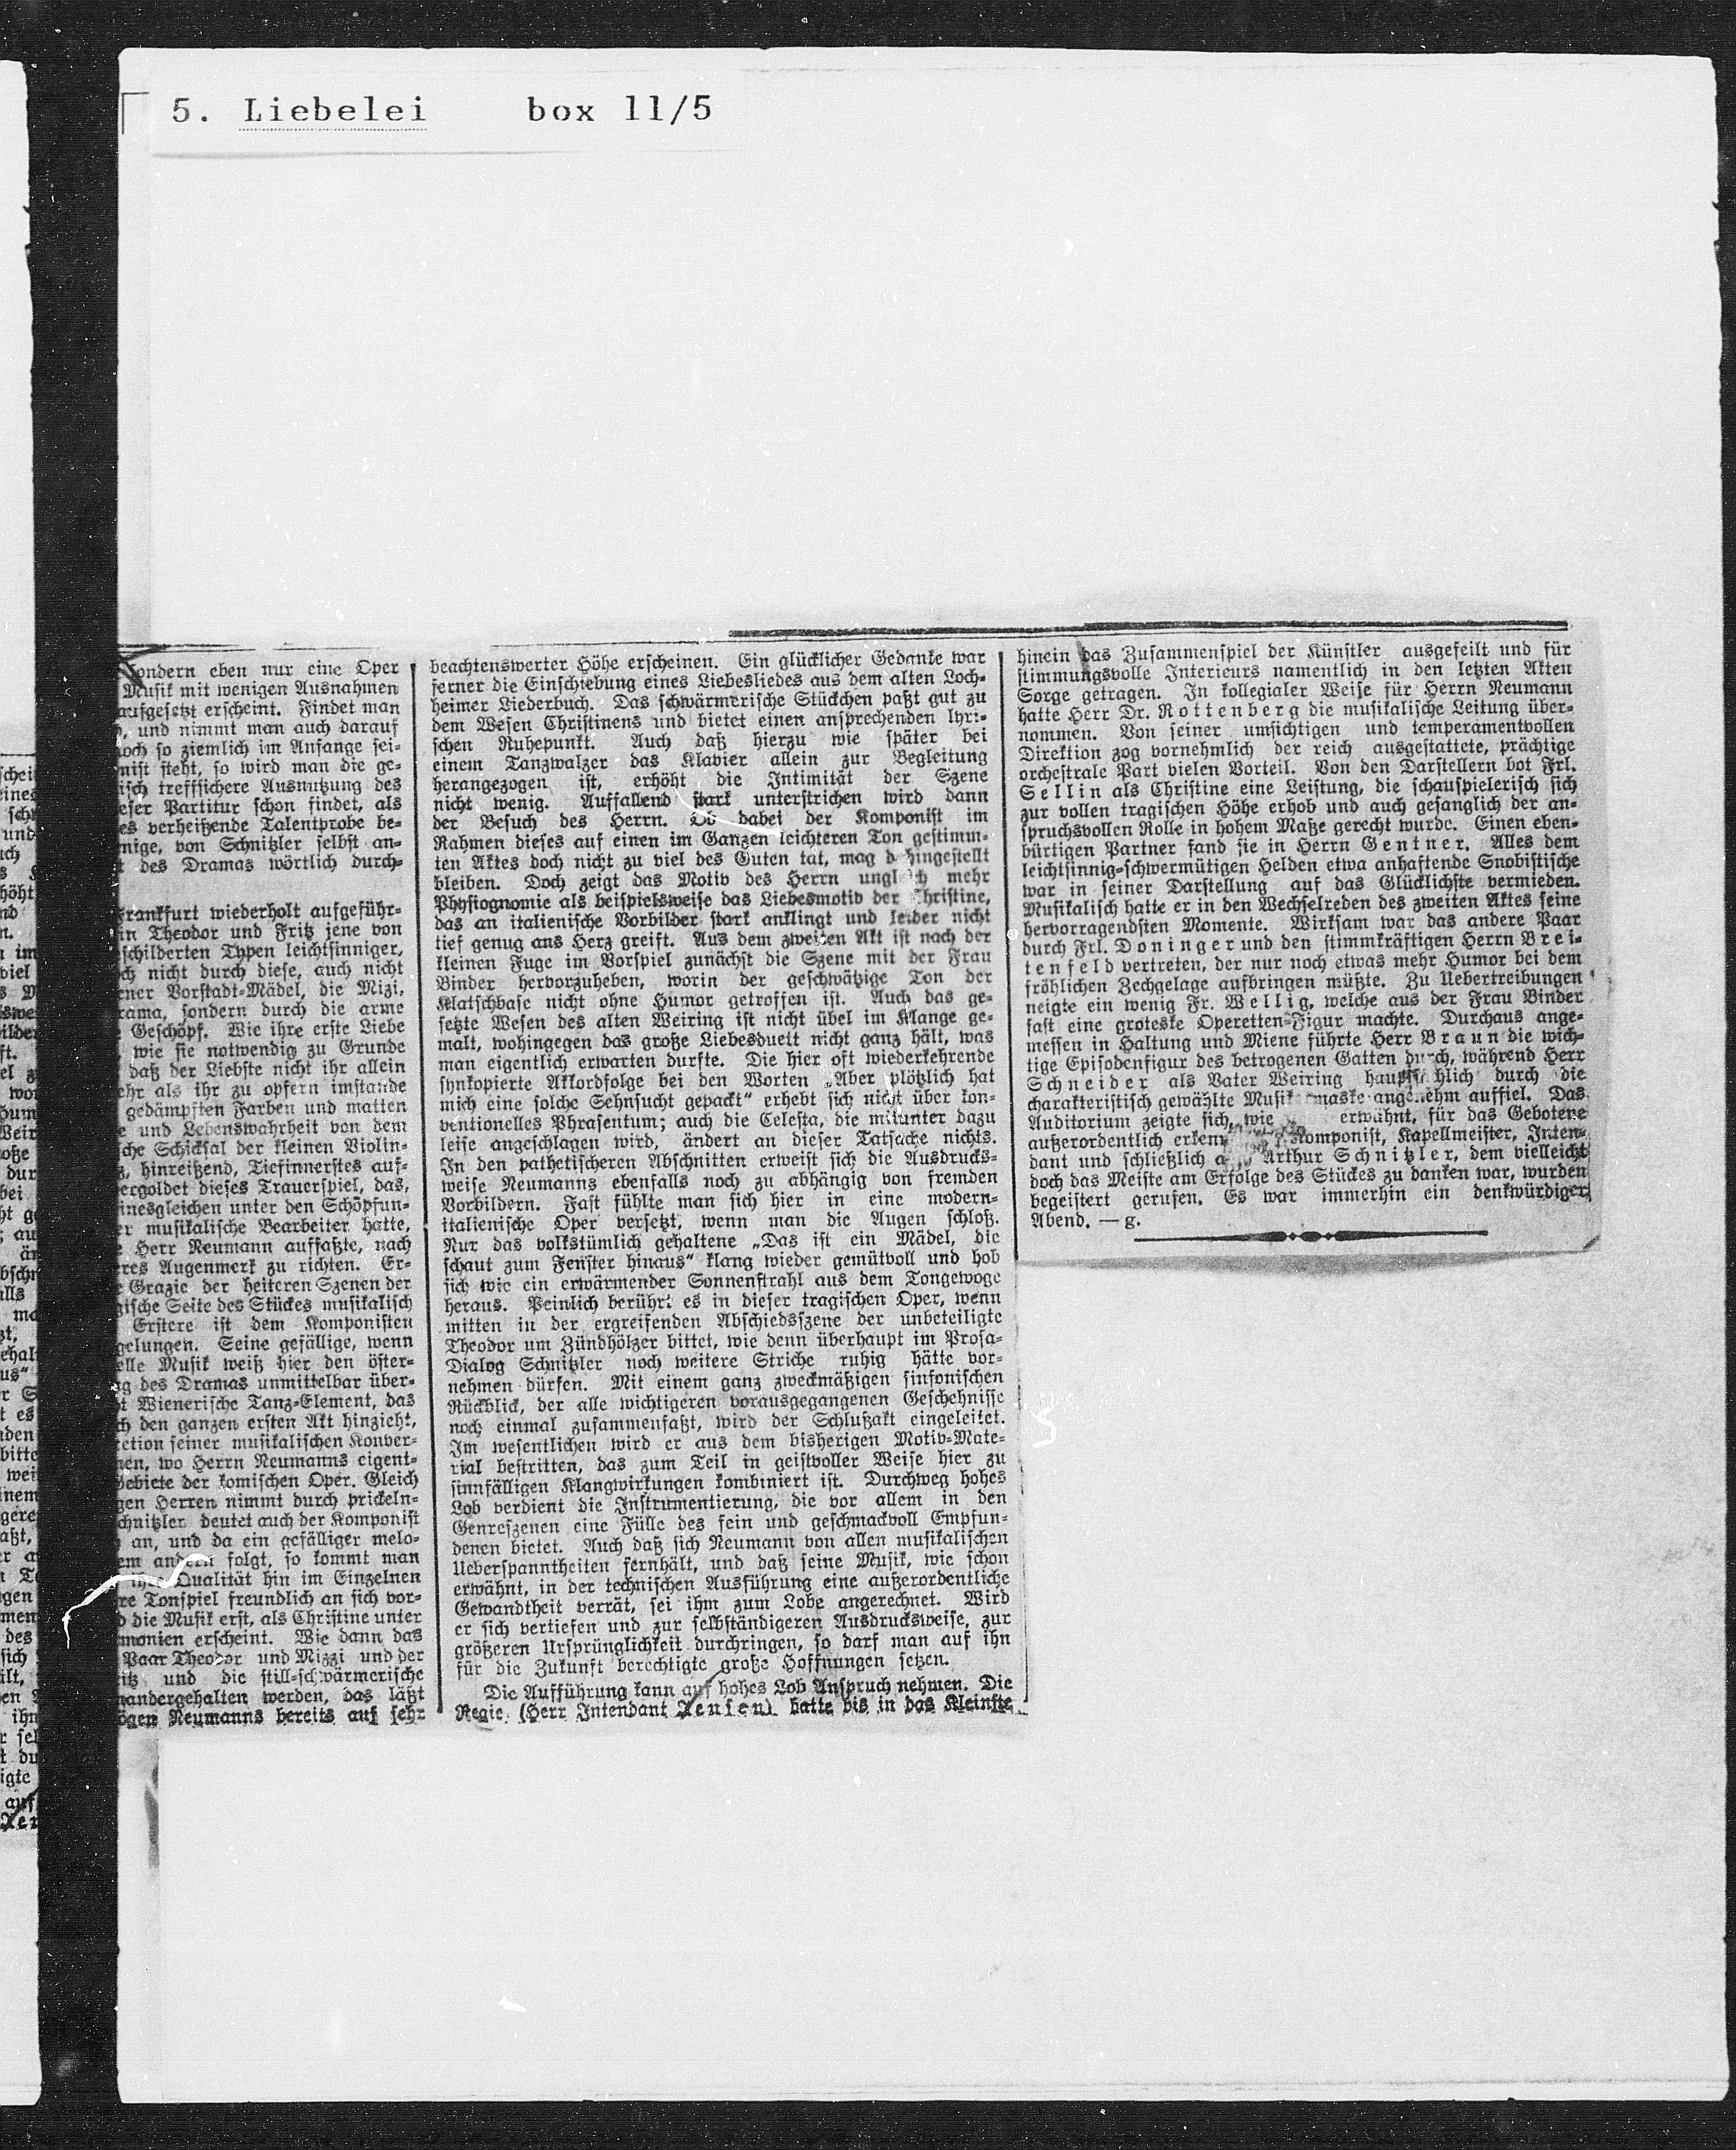 5. Liebelei box 11/5
sondern eben nur eine Oper
Musik mit wenigen Ausnahmen
aufgesetzt erscheint. Findet man
und nimmt man auch darauf
noch so ziemlich im Anfange sei-
steht, so wird man die ge-
treffsichere Ausnutzung des
Partitur schon findet, als
verheißende Talentprobe be-
von Schnitzler selbst an-
des Dramas wörtlich durch-
Frankfurt wiederholt aufgeführ-
in Theodor und Fritz jene von
schilderten Typen leichtsinniger,
nicht durch diese, auch nicht
Vorstadt-Mädel, die Mizi,
sondern durch die arme
Geschöpf. Wie ihre erste Liebe
wie sie notwendig zu Grunde
daß der Liebste nicht ihr allein
als ihr zu opfern imstande
gedämpften Farben und matten
und Lebenswahrheit von dem
Schicksal der kleinen Violin-
hinreißend, Tiefinnerstes auf-
vergoldet dieses Trauerspiel, das,
seinesgleichen unter den Schöpfun-
musikalische Bearbeiter hatte,
Herr Neumann auffaßte, nach
Augenmerk zu richten. Er-
Grazie der heiteren Szenen der
Seite des Stückes musikalisch
Erstere ist dem Komponisten
gelungen. Seine gefällige, wenn
Musik weiß hier den öster-
des Dramas unmittelbar über-
Wienerische Tanz-Element, das
den ganzen ersten Akt hinzieht,
seiner musikalischen Konver-
wo Herrn Neumanns eigent-
Gebiete der komischen Oper. Gleich
Herren nimmt durch prickeln-
Schnitzler deutet auch der Komponist
an, und da ein gefälliger melo-
andern folgt, so kommt man
Qualität hin im Einzelnen
Tonspiel freundlich an sich vor-
die Musik erst, als Christine unter
erscheint. Wie dann das
Paar Theodor und Mizzi und der
und die still-schwärmerische
werden, das läßt
Neumanns bereits auf sehr
beachtenswerter Höhe erscheinen. Ein glücklicher Gedanke war
ferner die Einschiebung eines Liebesliedes aus dem alten Loch-
heimer Liederbuch. Das schwärmerische Stückchen paßt gut zu
dem Wesen Christinens und bietet einen ansprechenden lyri-
schen Ruhepunkt. Auch daß hierzu wie später bei
einem Tanzwalzer das Klavier allein zur Begleitung
herangezogen ist, erhöht die Intimität der Szene
nicht wenig. Auffallend stark unterstrichen wird dann
der Besuch des Herrn. Ob dabei der Komponist im
Rahmen dieses auf einen im Ganzen leichteren Ton gestimm-
ten Aktes doch nicht zu viel des Guten tat, mag hingestellt
bleiben. Doch zeigt das Motiv des Herrn ungleich mehr
Physiognomie als beispielsweise das Liebesmotiv der Christine,
das an italienische Vorbilder stark anklingt und leider nicht
tief genug ans Herz greift. Aus dem zweiten Akt ist nach der
kleinen Fuge im Vorspiel zunächst die Szene mit der Frau
Binder hervorzuheben, worin der geschwätzige Ton der
Klatschbase nicht ohne Humor getroffen ist. Auch das ge-
setzte Wesen des alten Weiring ist nicht übel im Klange ge-
malt, wohingegen das große Liebesduett nicht ganz hält, was
man eigentlich erwarten durfte. Die hier oft wiederkehrende
synkopierte Akkordfolge bei den Worten „Aber plötzlich hat
mich eine solche Sehnsucht gepackt“ erhebt sich nicht über kon-
ventionelles Phrasentum; auch die Celesta, die mitunter dazu
leise angeschlagen wird, ändert an dieser Tatsache nichts.
In den pathetischeren Abschnitten erweist sich die Ausdrucks-
weise Neumanns ebenfalls noch zu abhängig von fremden
Vorbildern. Fast fühlte man sich hier in eine modern-
italienische Oper versetzt, wenn man die Augen schloß.
Nur das volkstümlich gehaltene „Das ist ein Mädel, die
schaut zum Fenster hinaus“ klang wieder gemütvoll und hob
sich wie ein erwärmender Sonnenstrahl aus dem Tongewoge
heraus. Peinlich berührt es in dieser tragischen Oper, wenn
mitten in der ergreifenden Abschiedsszene der unbeteiligte
Theodor um Zündhölzer bittet, wie denn überhaupt im Prosa-
Dialog Schnitzler noch weitere Striche ruhig hätte vor-
nehmen dürfen. Mit einem ganz zweckmäßigen sinfonischen
Rückblick, der alle wichtigeren vorausgegangenen Geschehnisse
noch einmal zusammenfaßt, wird der Schlußakt eingeleitet.
Im wesentlichen wird er aus dem bisherigen Motiv-Mate-
rial bestritten, das zum Teil in geistvoller Weise hier zu
sinnfälligen Klangwirkungen kombiniert ist. Durchweg hohes
Lob verdient die Instrumentierung, die vor allem in den
Genreszenen eine Fülle des fein und geschmackvoll Empfun-
denen bietet. Auch daß sich Neumann von allen musikalischen
Ueberspanntheiten fernhält, und daß seine Musik, wie schon
erwähnt, in der technischen Ausführung eine außerordentliche
Gewandtheit verrät, sei ihm zum Lobe angerechnet. Wird
er sich vertiefen und zur selbständigeren Ausdrucksweise, zur
größeren Ursprünglichkeit durchringen, so darf man auf ihn
für die Zukunft berechtigte große Hoffnungen setzen.
Die Aufführung kann auf hohes Lob Anspruch nehmen. Die
Regie (Herr Intendant Jensen) hatte bis in das Kleinste
hinein das Zusammenspiel der Künstler ausgefeilt und für
stimmungsvolle Interieurs namentlich in den letzten Akten
Sorge getragen. In kollegialer Weise für Herrn Neumann
hatte Herr Dr. Rottenberg die musikalische Leitung über-
nommen. Von seiner umsichtigen und temperamentvollen
Direktion zog vornehmlich der reich ausgestattete, prächtige
orchestrale Part vielen Vorteil. Von den Darstellern bot Frl.
Sellin als Christine eine Leistung, die schauspielerisch sich
zur vollen tragischen Höhe erhob und auch gesanglich der an-
spruchsvollen Rolle in hohem Maße gerecht wurde. Einen eben-
bürtigen Partner fand sie in Herrn Gentner. Alles dem
leichtsinnig-schwermütigen Helden etwa anhaftende Snobistische
war in seiner Darstellung auf das Glücklichste vermieden.
Musikalisch hatte er in den Wechselreden des zweiten Aktes seine
hervorragendsten Momente. Wirksam war das andere Paar
durch Frl. Doninger und den stimmkräftigen Herrn Brei-
tenfeld vertreten, der nur noch etwas mehr Humor bei dem
fröhlichen Zechgelage aufbringen müßte. Zu Uebertreibungen
neigte ein wenig Fr. Wellig, welche aus der Frau Binder
fast eine groteske Operetten-Figur machte. Durchaus ange-
messen in Haltung und Miene führte Herr Braun die wich-
tige Episodenfigur des betrogenen Gatten durch, während Herr
Schneider als Vater Weiring hauptsächlich durch die
charakteristisch gewählte Musikermaske angenehm auffiel. Das
Auditorium zeigte sich, wie erwähnt, für das Gebotene
außerordentlich Komponist, Kapellmeister, Inten-
dant und schließlich Arthur Schnitzler, dem vielleicht
doch das Meiste am Erfolge des Stückes zu danken war, wurden
begeistert gerufen. Es war immerhin ein denkwürdiger
Abend. — g.